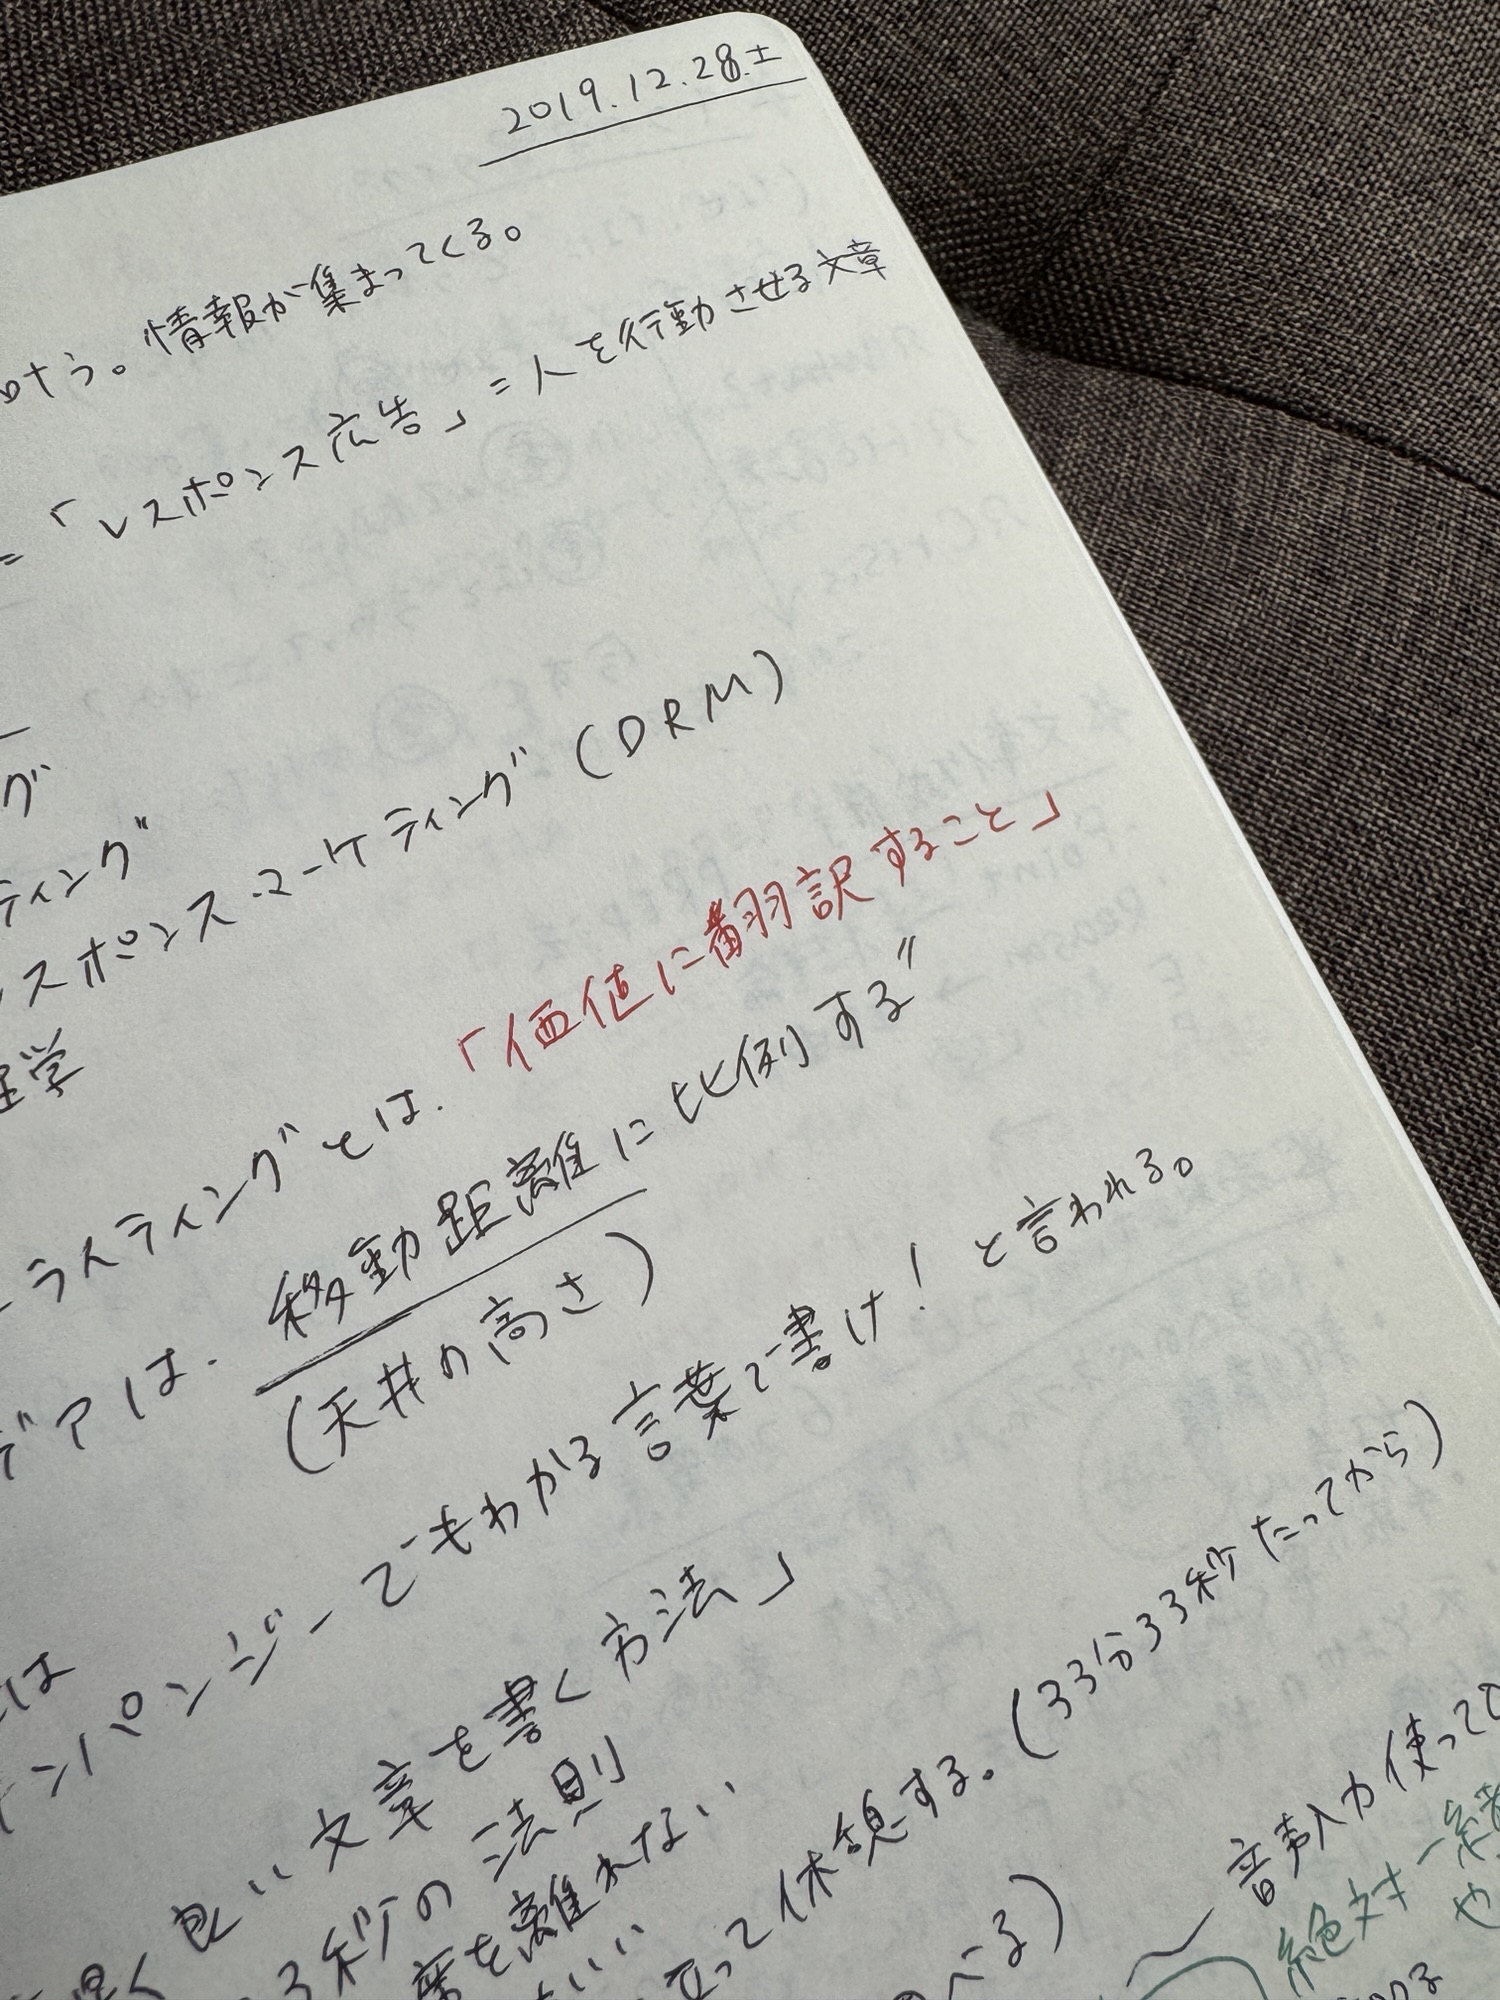 2019.12.28.土
情報が集まってくる。
=「レスポンス広告」=人を行動させる文章
グ
ティング
レスポンス・マーケティング(DRM)
理学
ライティングとは.「価値に翻訳すること」
デアは.移動距離に比例する”
(天井の高さ)
は
チンパンジーでもわかる言葉で書け!と言われる。
早く良い文章を書く方法」
3秒の法則
席を離れない
立って休憩する。(33分33秒たってから)
べる)
音声入力使って
絶対一緒
也